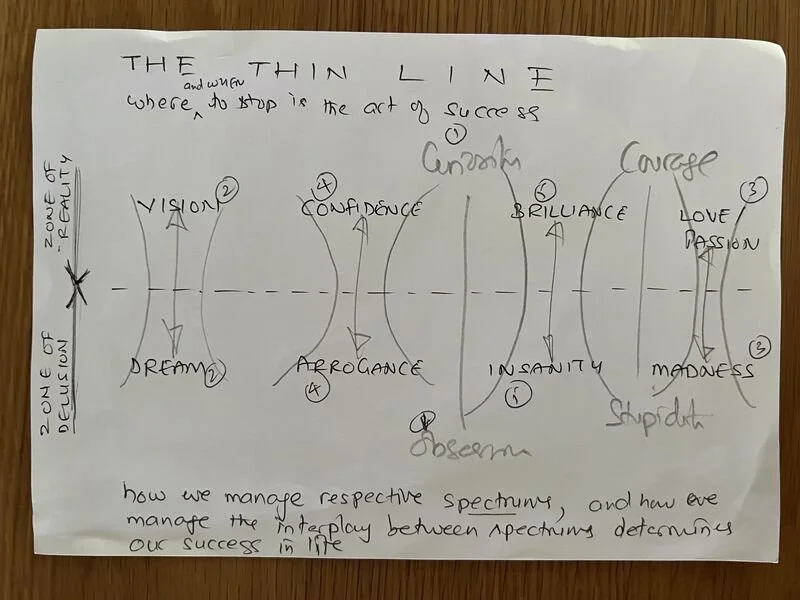 THE THIN LINE
and when
where ^ to stop is the art of success
①
Curiosity Courage
② ④ ⑤ ③
VISION CONFIDENCE BRILLIANCE LOVE
PASSION
ZONE OF REALITY
ZONE OF DELUSION
DREAM ② ARROGANCE INSANITY MADNESS ③
④ ⑤
Stupidity
Obsession
how we manage respective spectrums, and how we
manage the interplay between spectrums determines
our success in life